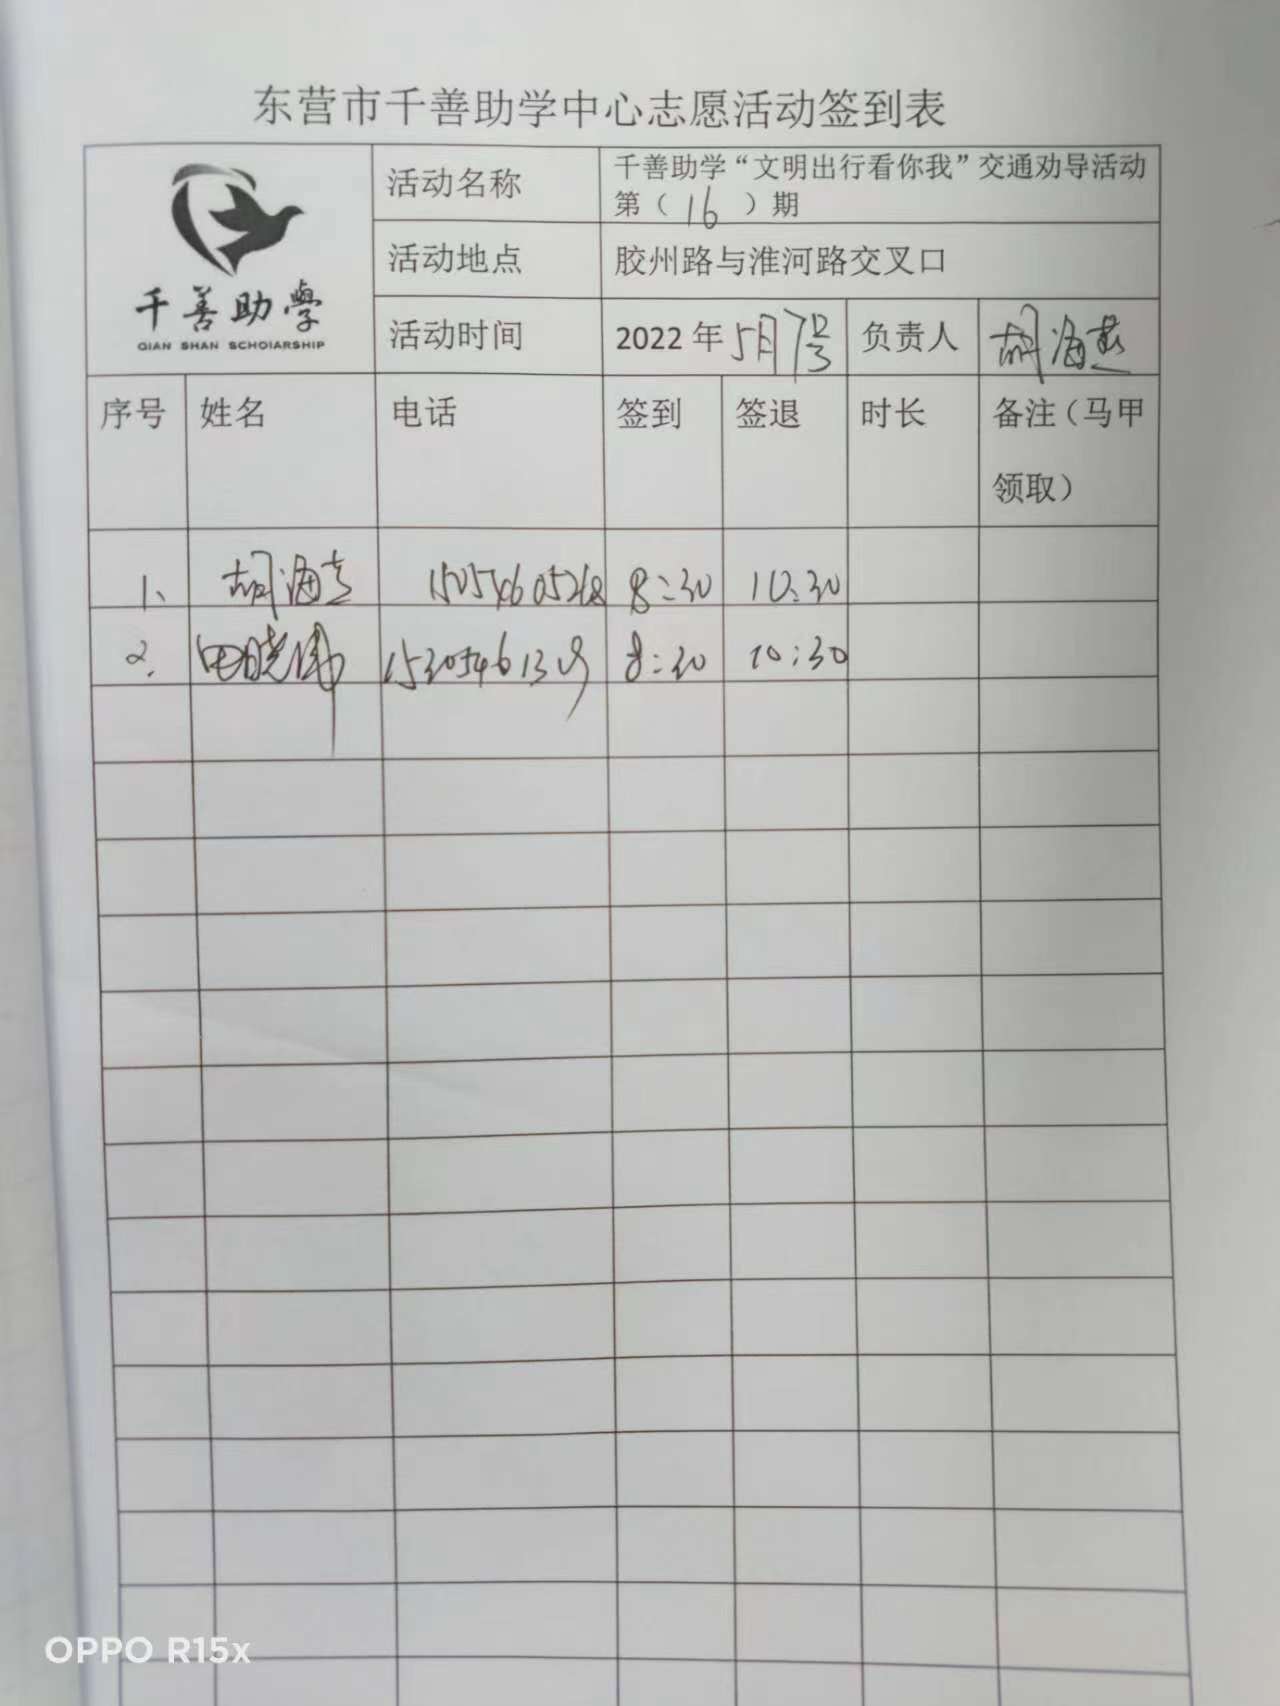 东营市千善助学中心志愿活动签到表
千善助学
QIAN SHAN SCHOIARSHIP
活动名称
千善助学“文明出行看你我”交通劝导活动
第（16）期
活动地点
胶州路与淮河路交叉口
活动时间
2022年5月7号
负责人
胡海燕
序号 姓名 电话 签到 签退 时长 备注（马甲
领取）
1、 胡海 8:30 10:30
2. 田晓伟 8:30 10:30
OPPO R15x